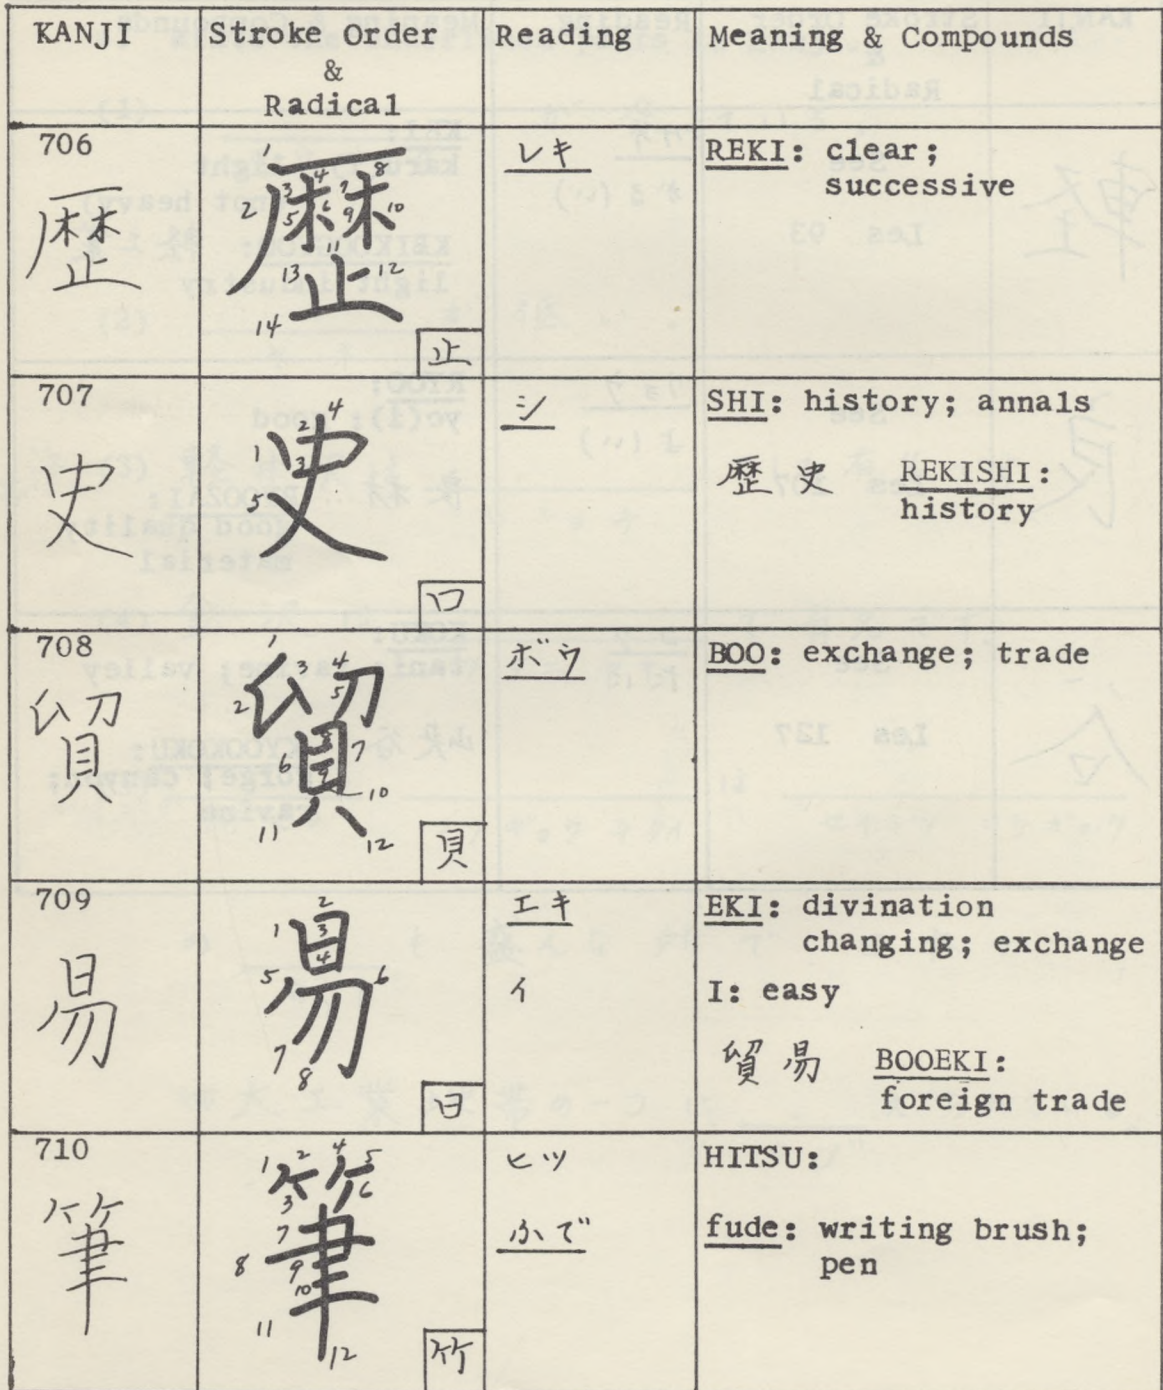 KANJI Stroke Order Reading Meaning & Compounds
&
Radical
706
歴
1 2 3 4 5 6 7 8 9 10 11 12 13 14
歴
止
レキ
REKI: clear;
successive
707
史
1 2 3 4 5
史
口
シ
SHI: history; annals
歴史 REKISHI:
history
708
貿
1 2 3 4 5 6 7 8 9 10 11 12
貿
貝
ボウ
BOO: exchange; trade
709
易
1 2 3 4 5 6 7 8
易
日
エキ
イ
EKI: divination
changing; exchange
I: easy
貿易 BOOEKI:
foreign trade
710
筆
1 2 3 4 5 6 7 8 9 10 11 12
筆
竹
ヒツ
ふで
HITSU:
fude: writing brush;
pen